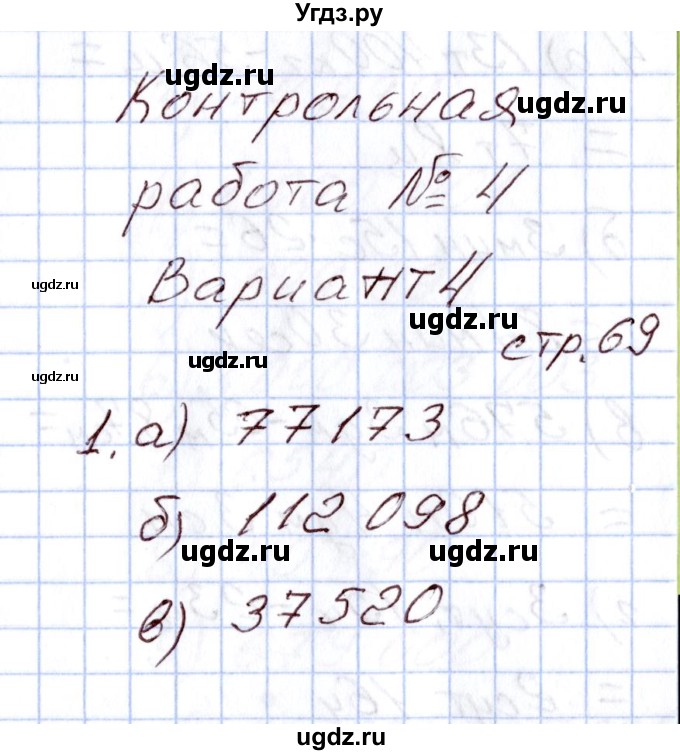 Угдз.ру
ugdz.ru
Контрольная
ugdz.ru
работа № 4
ugdz.ru
Вариант 4
ugdz.ru
стр. 69
ugdz.ru
ugdz.ru
1. а) 77173
б) 112 098
ugdz.ru ugdz.ru
в) 37520
ugdz.ru